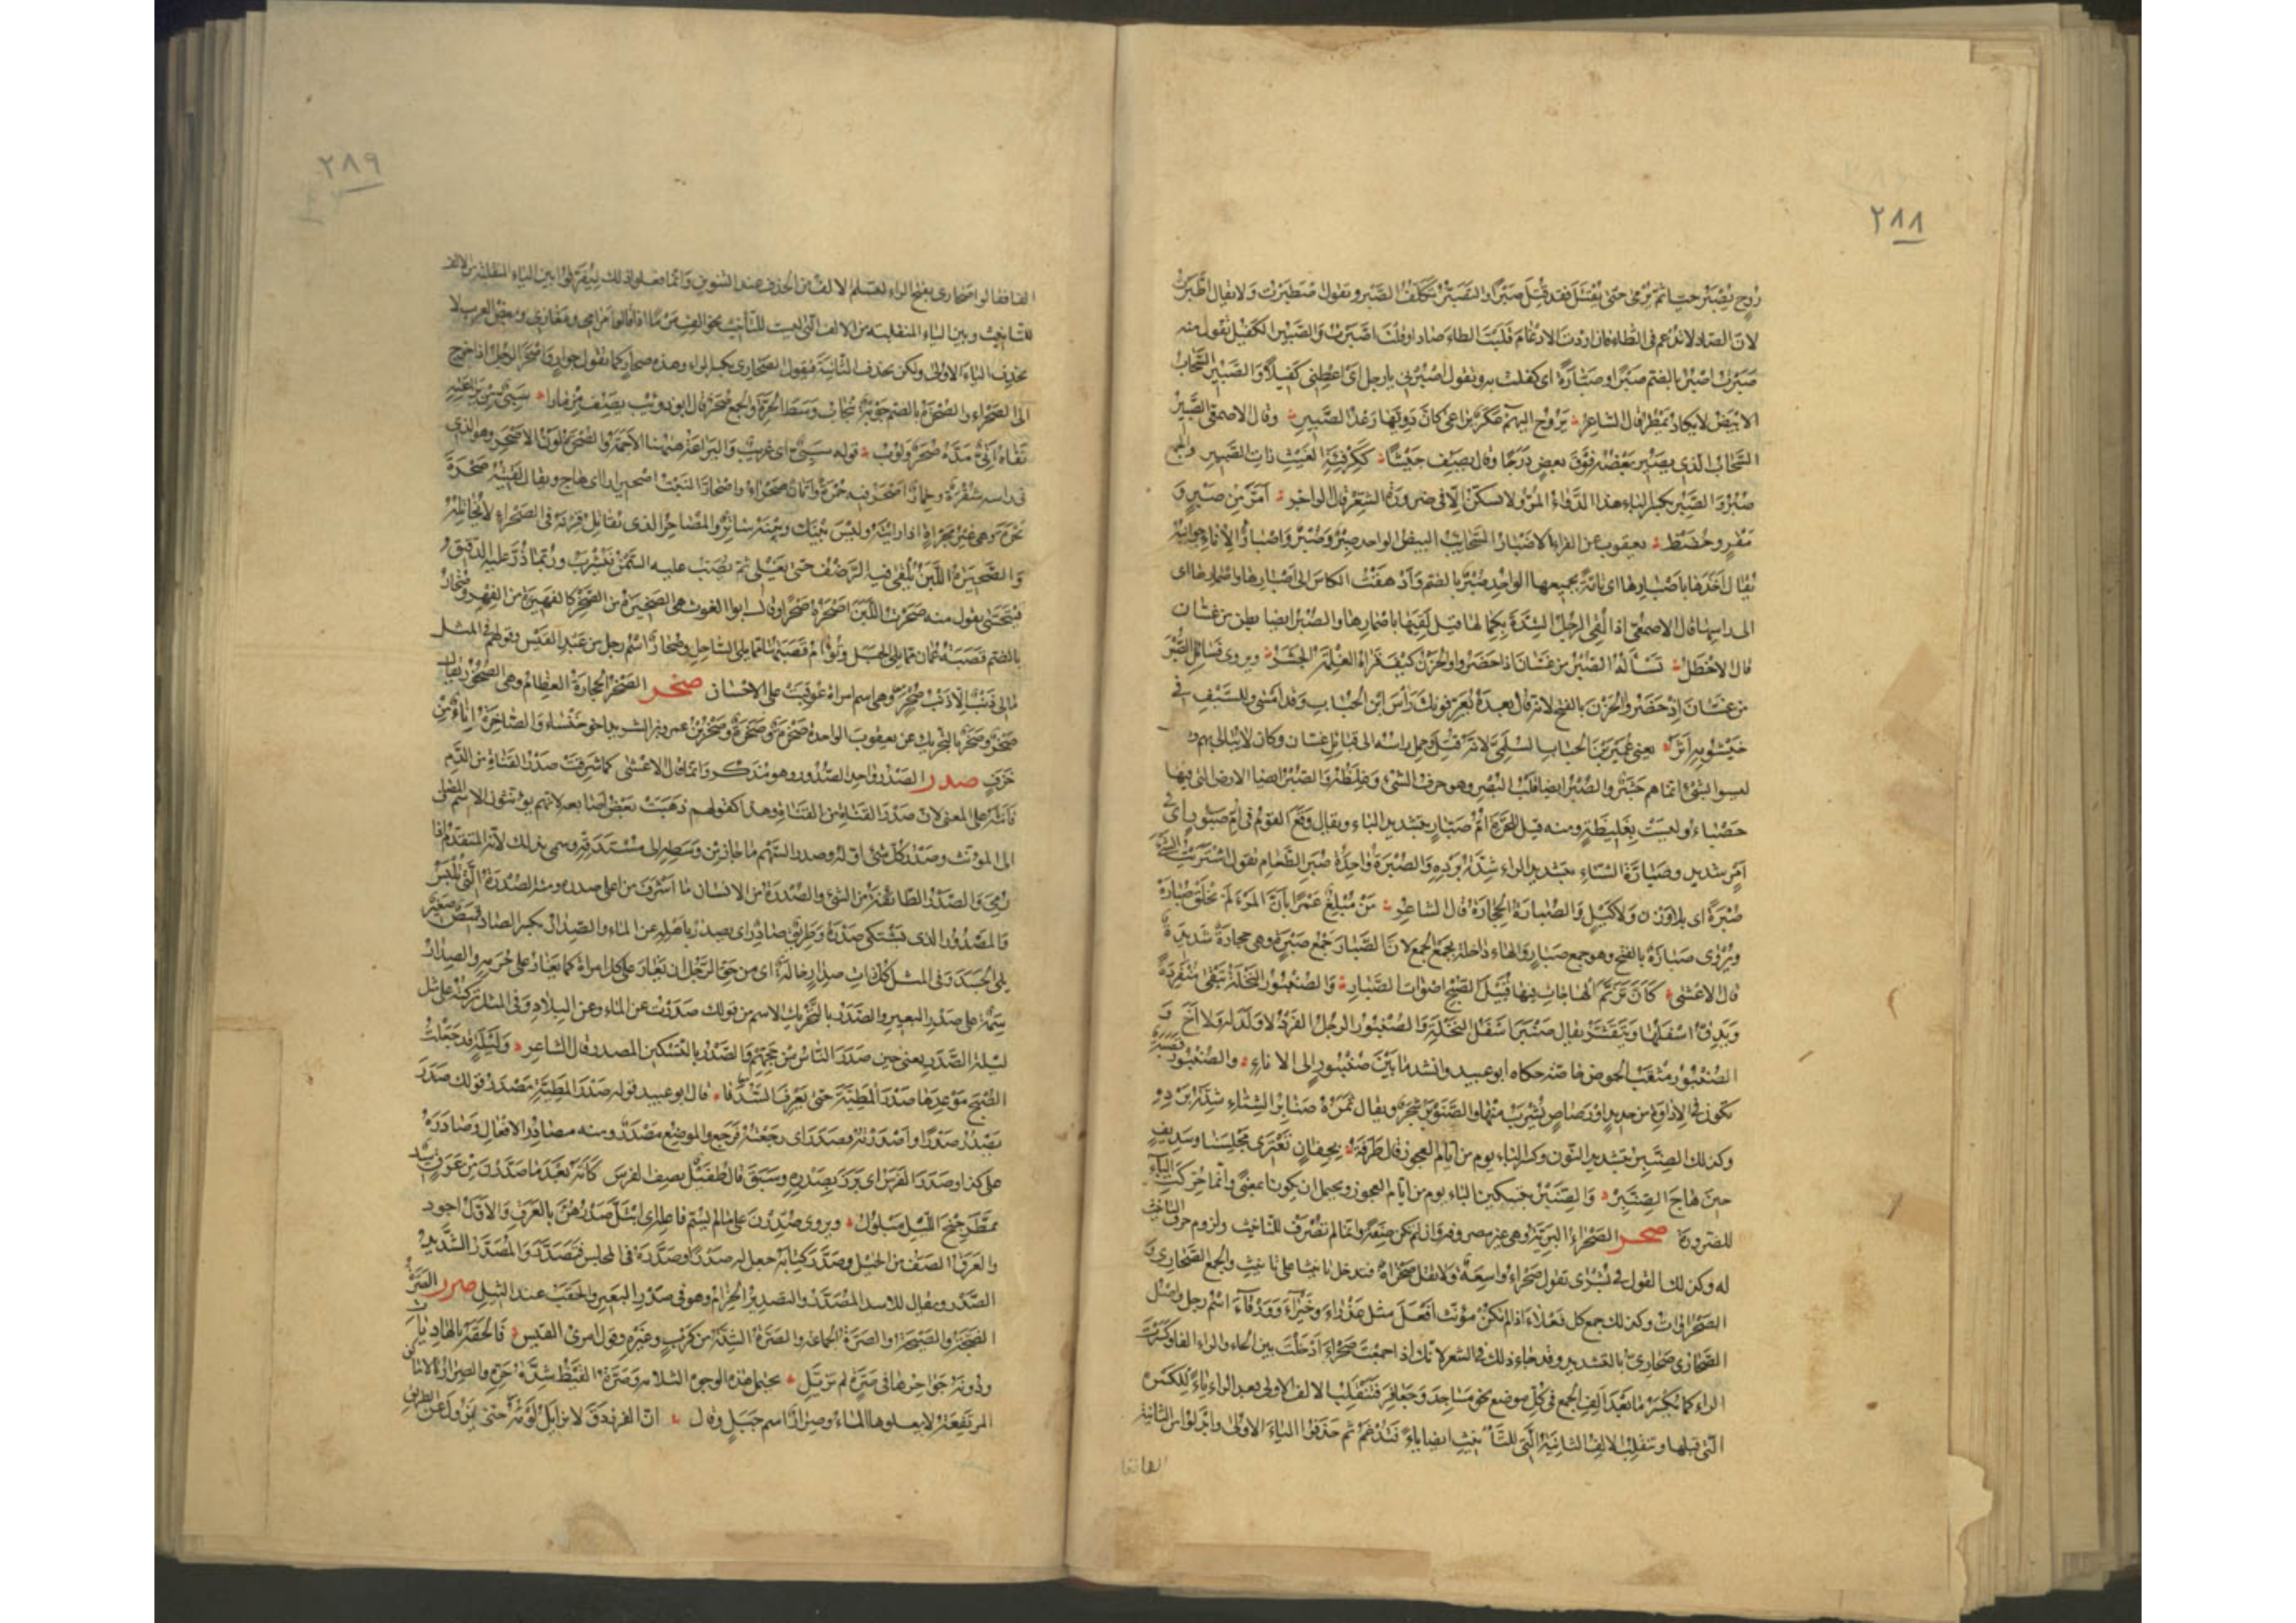 ٢٨٨
روح يصبر حيا ثم يرمى حتى يقتل فقد قتل صبرا والتصبر تكلف الصبر وتقول اصطبرت ولا يقال اطبرت
لان الصاد لا تدغم فى الطاء فان اردت الادغام قلبت الطاء صادا وقلت اصبرت والصبير الكفيل تقول منه
صبرت اصبر بالضم صبرا وصبارة اى كفلت به وتقول اصبرنى يا رجل اى اعطنى كفيلا والصبير السحاب
الابيض لا يكاد يمطر قال الشاعر يروح اليهم عكر تراغى كان دويها رعد الصبير وقال الاصمعى الصبير
السحاب الذى يصير بعضه فوق بعض درجا وقال يصف جيشا ككرفئة الغيث ذات الصبير والجمع
صبر والصبر بكسر الباء هذا الدواء المر ولا يسكن الا فى ضرورة الشعر قال الراجز امر من صبر و
مقر وحضض يعقوب عن الفراء الاصبار السحائب البيض الواحد صبر وصبر واصبار الاناء جوانبه
يقال اخذها باصبارها اى تامة بجميعها الواحد صبر بالضم وادهقت الكاس الى اصبارها واصمارها اى
الى راسها قال الاصمعى اذا لقى الرجل الشدة بكمالها قيل لقيها باصبارها والصبر ايضا بطن من غسان
قال الاخطل تسأله الصبر من غسان اذ حضروا والحزن كيف قراه الغلمة الجشر ويروى فسائل الصبر
من غسان اذ حضروا والحزن بالفتح لانه قال بعده يعرفونك رأس ابن الحباب وقد امسى وللسيف فى
خيشومه اثر يعنى عمير بن الحباب السلمى لانه قتل وحمل راسه الى قبائل غسان وكان لا يبالى بهم و
ليسوا بشئ انما هم جشر والصبر ايضا قلب البصر وهو حرف الشئ وغلظه والصبر ايضا الارض التى فيها
حصباء وليست بغليظة ومنه قيل للحرة ام صبار بتشديد الباء ويقال وقع القوم فى ام صبور اى فى
امر شديد وصبارة الشتاء بتشديد الراء شدة برده والصبرة واحدة صبر الطعام تقول اشتريت الشئ
صبرة اى بلا وزن ولا كيل والصبارة الحجارة قال الشاعر من مبلغ عمرا بأن المرء لم يخلق صبارة
ويروى صبارة بالفتح وهو جمع صبار والهاء داخلة لجمع الجمع لان الصبار جمع صبرة وهى حجارة شديدة
قال الاعشى كأن ترنم الهاجات فيها قبيل الصبح اصوات الصبار والصنبور النخلة تبقى منفردة
ويدق اسفلها ويتقشر يقال صنبر اسفل النخلة والصنبور الرجل الفرد لا ولد له ولا اخ و
الصنبور مثقب الحوض خاصة حكاه ابو عبيد وانشد ما بين صنبور الى الازاء والصنبور قصبة
تكون فى الاداوة من حديد او رصاص يشرب منها والصنوبر شجر ويقال ثمره صنابر الشتاء شدة برده
وكذلك الصنبر بتشديد النون وكسر الباء يوم من ايام العجوز قال طرفة بجفان تعترى مجلسنا وسديف
حين هاج الصنبر والصنبر بتسكين الباء يوم من ايام العجوز ويحتمل ان يكونا بمعنى وانما حركت الباء
للضرورة صحر الصحراء البرية وهى غير مصروفة وان لم تكن صفة وانما لم تصرف للتانيث ولزوم حرف التانيث
له وكذلك القول فى بشرى تقول صحراء واسعة ولا تقل صحراة فتدخل تانيثا على تانيث والجمع الصحارى و
الصحراوات وكذلك جمع كل فعلاء اذا لم تكن مؤنث افعل مثل عذراء وخبراء وورقاء اسم رجل واصل
الصحارى صحارى بالتشديد وقد جاء ذلك فى الشعر لانك اذا جمعت صحراء ادخلت بين الحاء والراء الفا وكسرت
الراء كما تكسر ما بعد الف الجمع فى كل موضع نحو مساجد وجعافر فتنقلب الالف الاولى بعد الراء ياء للكسرة
التى قبلها وتنقلب الالف الثانية التى للتأنيث ايضا ياء فتدغم ثم حذفوا الياء الاولى وابدلوا من الثانية
الفا فقا
٢٨٩
الفا فقالوا صحارى بفتح الراء لتسلم الالف من الحذف عند التنوين وانما فعلوا ذلك ليفرقوا بين الياء المنقلبة من الالف
للتانيث وبين الياء المنقلبة من الالف التى ليست للتأنيث نحو الف مرمى اذ قالوا مرامى ومغازى وبعض العرب لا
يحذف الياء الاولى ولكن يحذف الثانية فيقول الصحارى بكسر الراء وهذه صحار كما تقول جوار واصحر الرجل اذا خرج
الى الصحراء والصحرة بالضم جوبة تنجاب وسط الحرة والجمع صحر قال ابو ذويب يصف مزمارا سبى من يراعته
نفاه اتى مده صحر ولوب قوله سبى اى غريب والبراعة ههنا الاجمة والصحرة لون الاصحر وهو الذى
فى راسه شقرة وحمار اصحر فيه حمرة واتان صحراء واصحار النبت اصحيرارا اى هاج ويقال لقيته صحرة
بحرة وهى غير مجراة اذا رايته وليس بينك وبينه ساتر والمصاحر الذى يقاتل قرنه فى الصحراء لا يخاتله
والصحيرة اللبن يلقى فيه الرضف حتى يغلى ثم يصب عليه السمن فيشرب وربما ذر عليه الدقيق
فيتحسى تقول منه صحرت اللبن اصحره صحرا وقال ابو الغوث هى الصحيرة من الصحر كالفهيرة من الفهر وصحار
بالضم قصبة عمان مما يلى الجبل وتؤام قصبتها مما يلى الساحل وصحار اسم رجل من عبد القيس وقولهم فى المثل
مالى ذنب الا ذنب صحر وهى اسم امراة عوقبت على الاحسان صخر الصخر الحجارة العظام وهى الصخور يقال
صخر وصخر بالتحريك عن يعقوب الواحدة صخرة وصخرة وصخر بن عمرو بن الشريد اخو خنساء والصاخرة اناء من
خزف صدر الصدر واحد الصدور وهو مذكر وانما قال الاعشى كما شرقت صدر القناة من الدم
فانثه على المعنى لان صدر القناة من القناة وهذا كقولهم ذهبت بعض اصابعه لانهم يؤنثون الاسم المضاف
الى المؤنث وصدر كل شئ اوله وصدر السهم ما جاز من وسطه الى مستدقه وسمى بذلك لانه المتقدم اذا
رمى والصدر الطائفة من الشئ والصدرة من الانسان ما اشرف من اعلى صدره ومنه الصدرة التى تلبس
والمصدور الذى يشتكى صدره وطريق صادر اى يصدر باهله عن الماء والصدار بكسر الصاد قميص صغير
يلى الجسد وفى المثل كل ذات صدار خالة اى من حق الرجل ان يغار على كل امراة كما يغار على حرمه والصدار
سمة على صدر البعير والصدر بالتحريك الاسم من قولك صدرت عن الماء وعن البلاد وفى المثل تركته على مثل
ليلة الصدر يعنى حين صدر الناس من حجهم والصدر بالتسكين المصدر قال الشاعر وليلة قد جعلت
الصبح موعدها صدر المطية حتى تعرف السدفا قال ابو عبيد قوله صدر المطية مصدر قولك صدر
يصدر صدرا واصدرته فصدر اى رجعته فرجع والموضع مصدر ومنه مصادر الافعال وصادره
على كذا وصدر الفرس اى برز بصدره وسبق قال طفيل يصف الفرس كأنه بعد ما صدرن من عرق سيد
تمطر جنح الليل مبلول ويروى صدرن على ما لم يسم فاعله اى ابتل صدرهن بالعرق والاول اجود
والعرق الصف من الخيل وصدر كتابه جعل له صدرا وصدره فى المجلس فتصدر والمصدر الشديد
الصدر ويقال للاسد المصدر والتصدير الحزام وهو فى صدر البعير والحقب عند الثيل صرر الصرة
الضجة والصيحة والصرة الجماعة والصرة الشدة من كرب وغيره وقول امرئ القيس فالحقه بالهاديات
ودونه جواحرها فى صرة لم تزيل يحتمل هذه الوجوه الثلاثة وصرة القيظ شدة حره والصرار الاماكن
المرتفعة لا يعلوها الماء وصرار اسم جبل وقال ان الفرزدق لا يزايل لؤمه حتى يزول عن الطريق